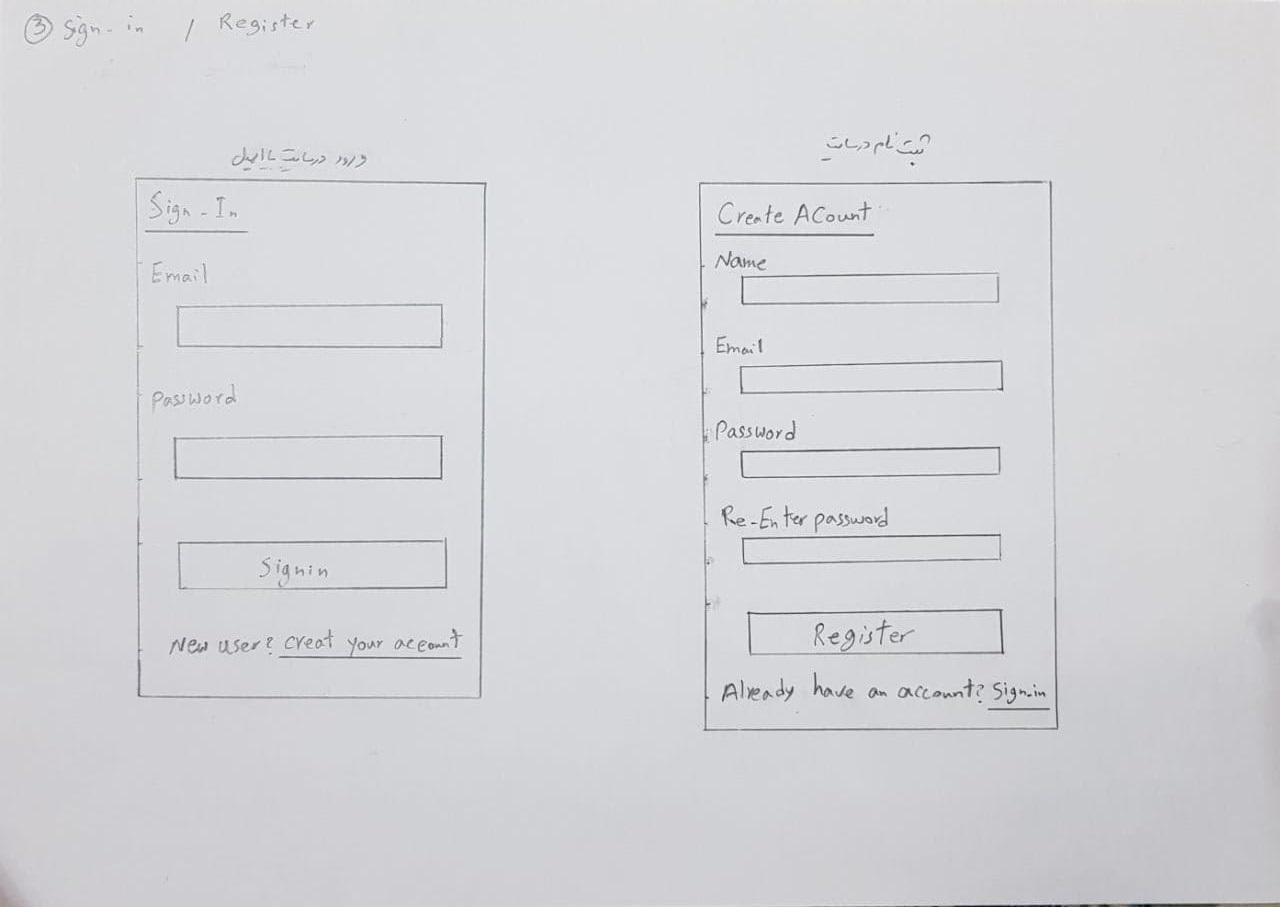 ③ Sign-in / Register
ورود در سایت با ایمیل
Sign-In
Email
Password
Signin
New user? creat your account
ثبت نام در سایت
Create ACount
Name
Email
Password
Re-Enter password
Register
Already have an account? Sign-in